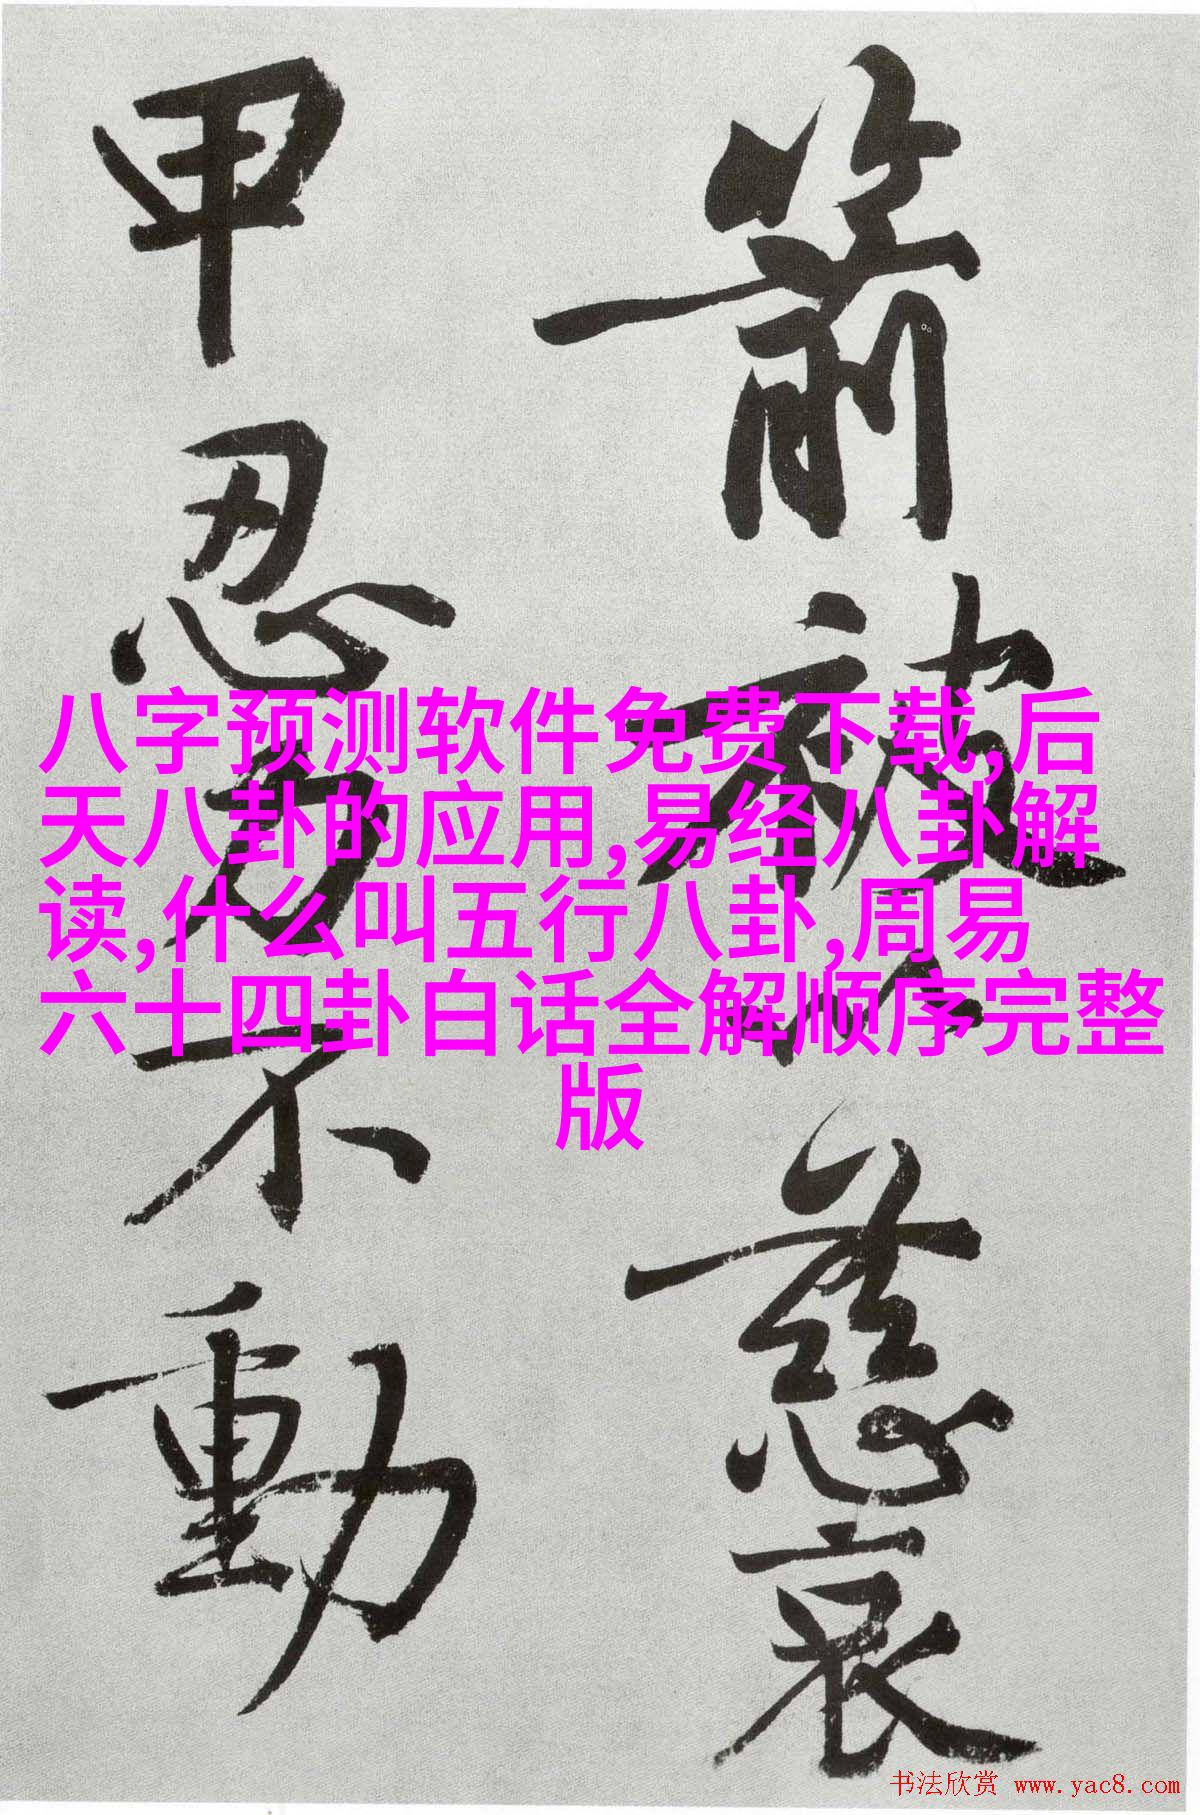 箭被慈哀
甲忍力不動
八字预测软件免费下载,后
天八卦的应用,易经八卦解
读,什么叫五行八卦,周易
六十四卦白话全解顺序完整
版
书法欣赏 www.yac8.com